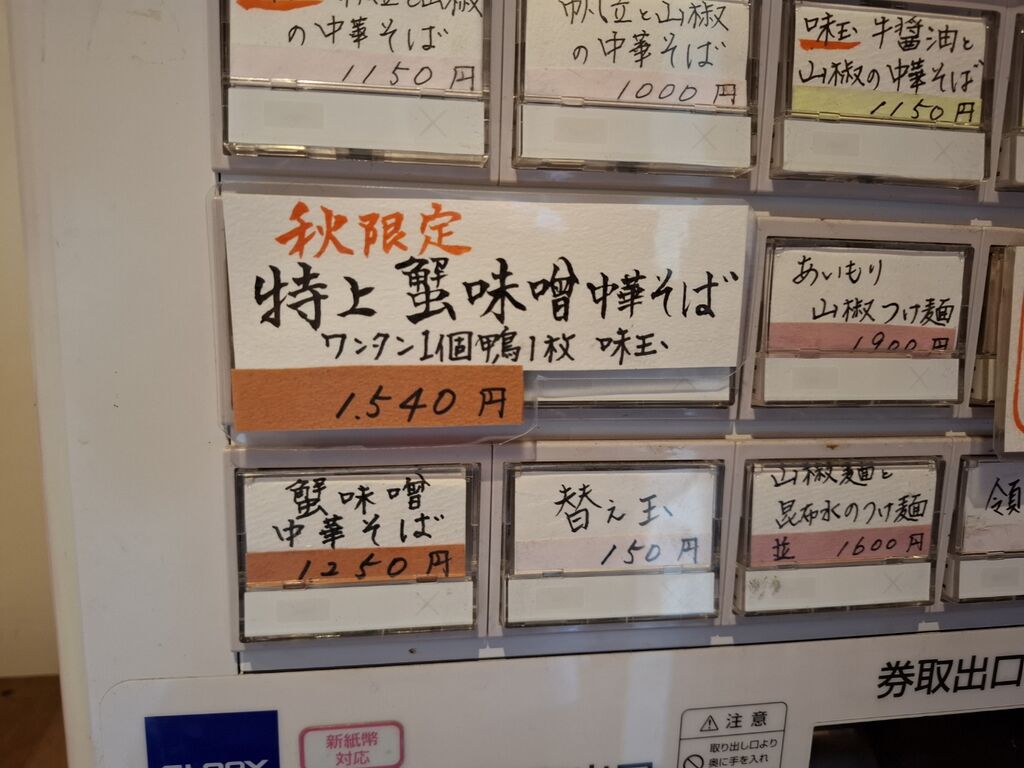 と山椒
の中華そば
1150円
帆立と山椒
の中華そば
1000円
味玉 牛醤油と
山椒の中華そば
1150円
秋限定
特上 蟹味噌中華そば
ワンタン1個 鴨1枚 味玉
1.540円
あいもり
山椒つけ麺
1900円
蟹味噌
中華そば
1250円
替え玉
150円
山椒麺と
昆布水のつけ麺
並 1600円
領
券取出口
新紙幣
対応
注意
取り出し口より
奥に手を入れ